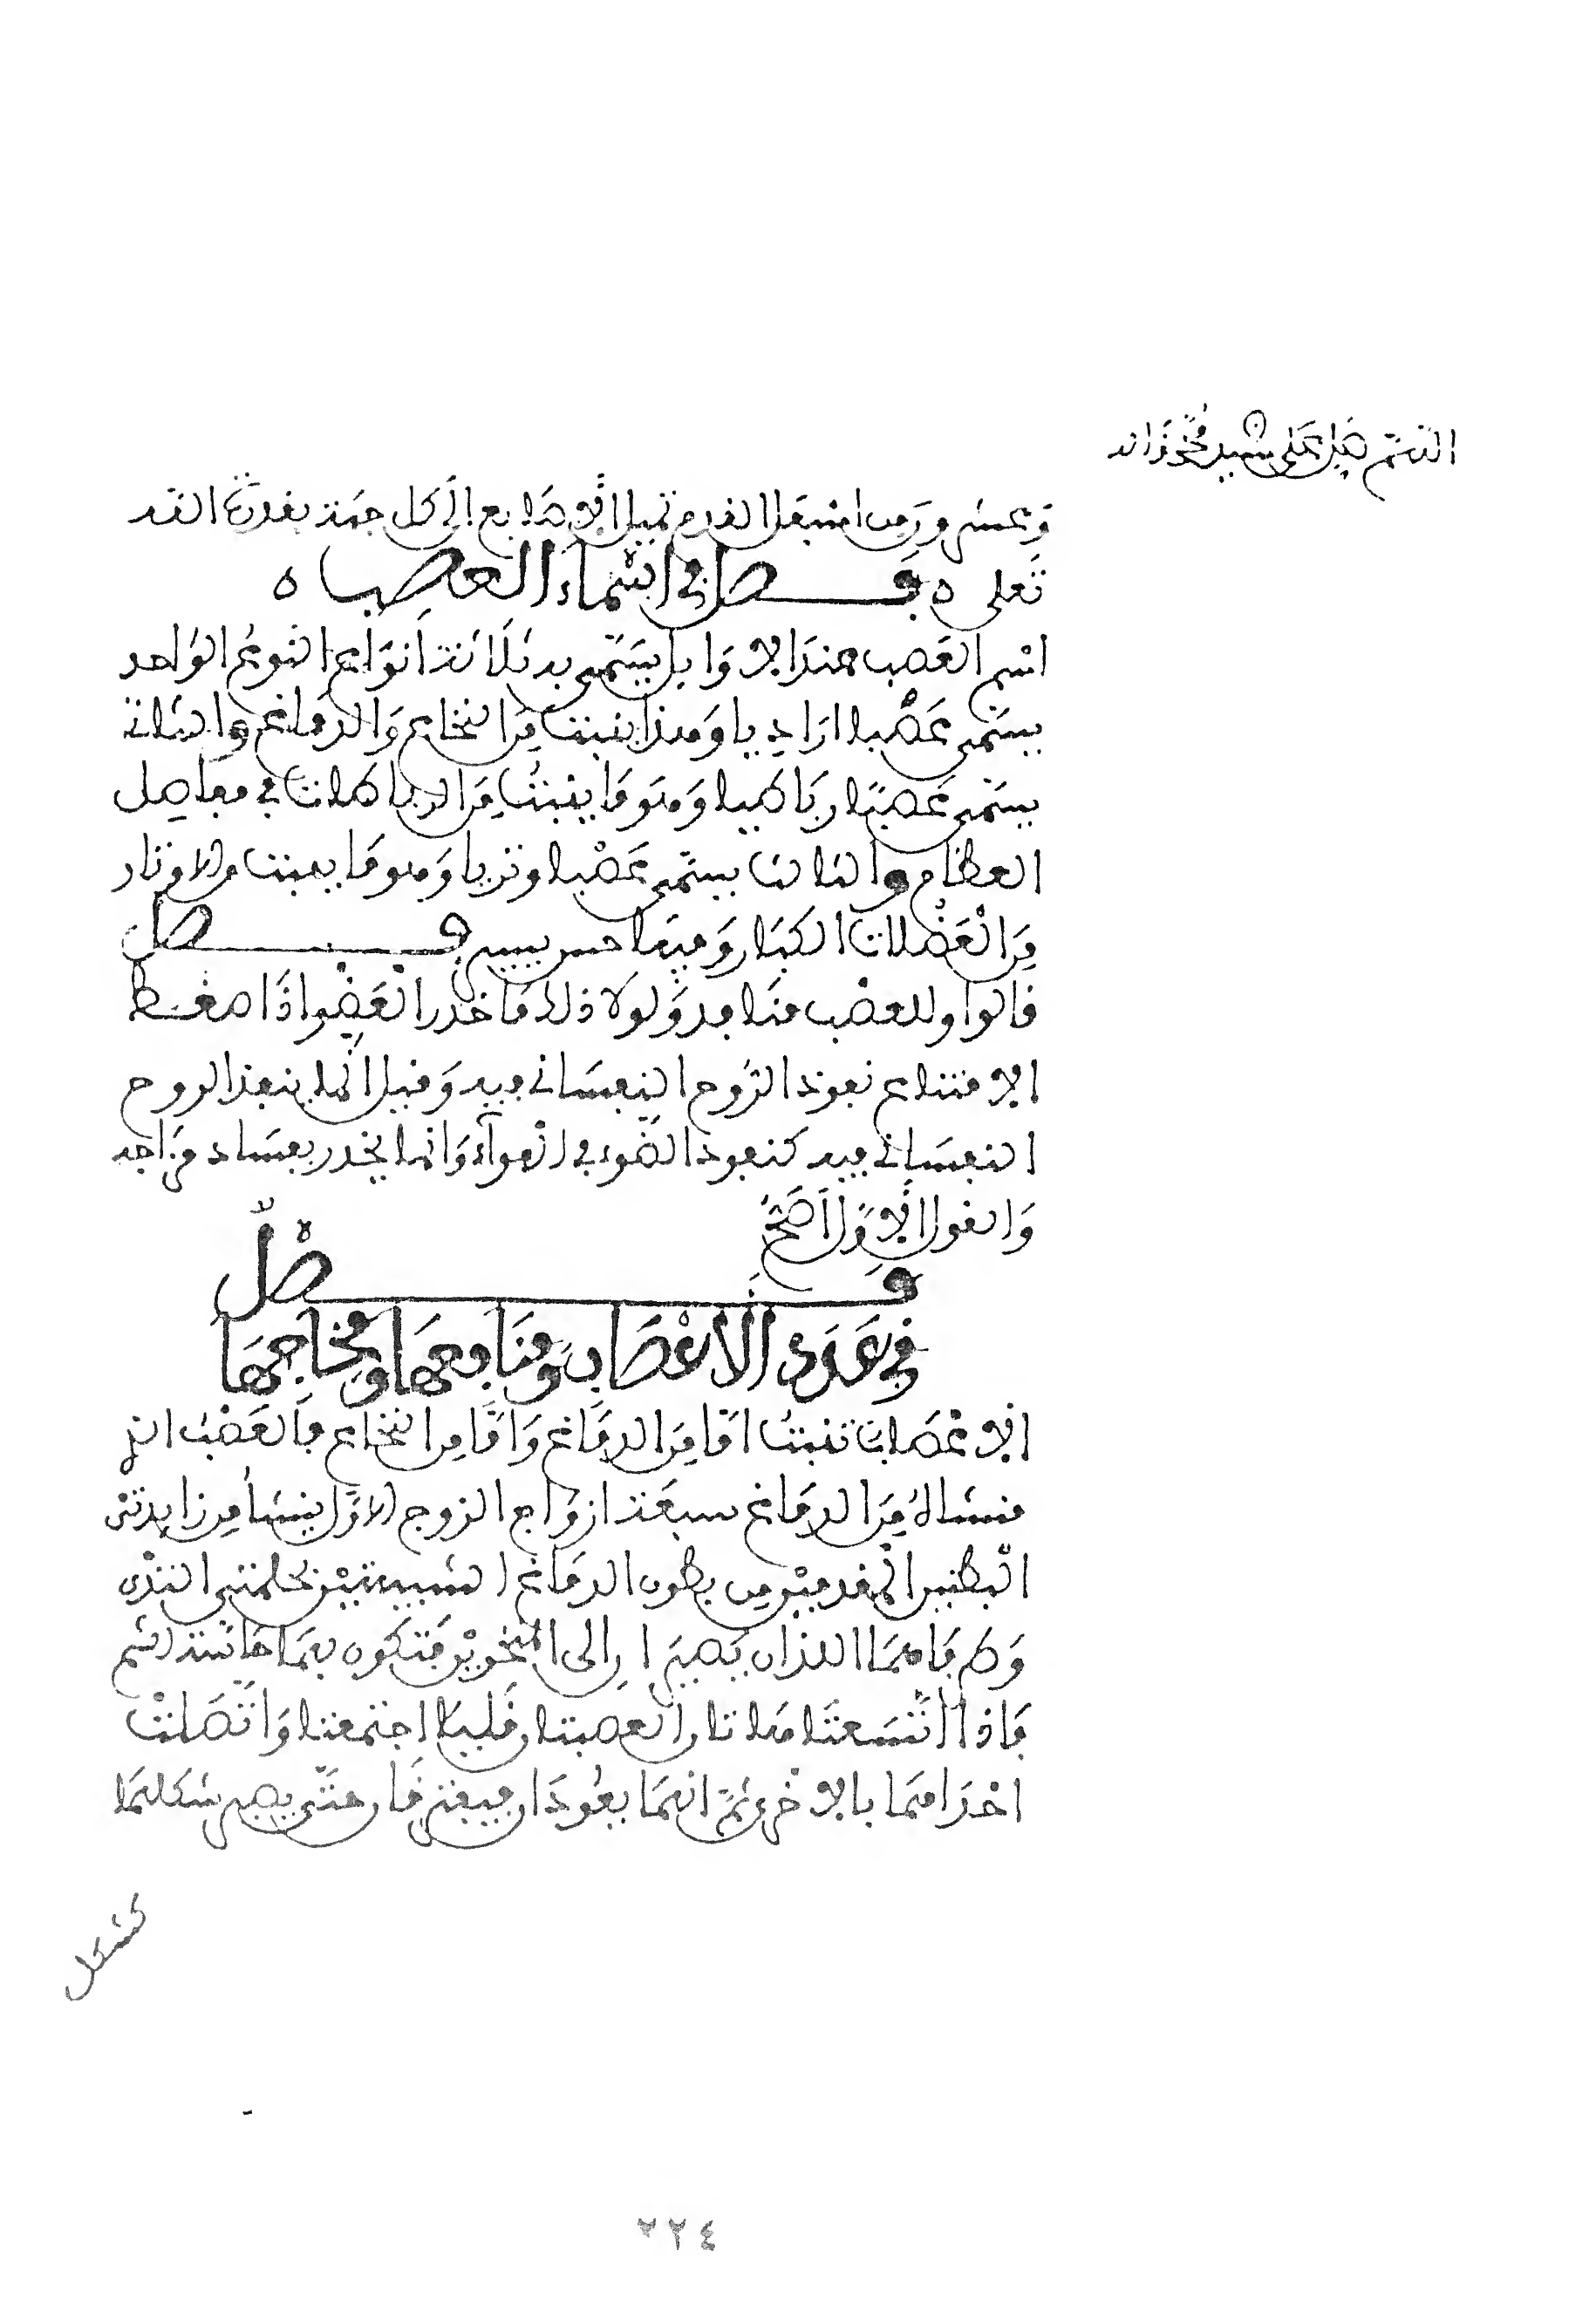 اللهم صل على سيدنا محمد واله
وعشرون ومن اسفل القدم تميل الاصابع الى كل جهة بقدرة الله
تعلى ه فصل في اسماء العصب ه
اسم العصب عند الاوايل يسمى به ثلاثة انواع النوع الواحد
يسمى عصبا اراديا وهذا ينبت من النخاع والدماغ والثانى
يسمى عصبا رباطيا وهو ما ينبت من الرباطات في مفاصل
العظام والثالث يسمى عصبا وتريا وهو ما ينبت من الاوتار
من العضلات الكبار وفيها حس يسير فصل
قالوا وللعصب منافد ولولا ذلك ما خدر العضو اذا ضغط
لامتناع نفوذ الروح النفساني فيه وقيل انما ينفذ الروح
النفساني فيه كنفوذ الضوء في الهواء وانما يخدر بفساد مزاجه
والقول الاول اصح
فصل
في عدد الاعصاب ومنافعها ومخارجها
الاعصاب تنبت اما من الدماغ واما من النخاع فالعصب الذي
منشاه من الدماغ سبعة ازواج الزوج الاول ينشا من زايدتي
البطنين المقدمين من بطون الدماغ الشبيهتين بحلمتي الثدى
وطرفاهما اللذان يصيران الى المنخرين فتكون بهما حاسة الشم
فاذا اتسعت هاتان العصبتان قليلا اجتمعتا واتصلت
احداهما بالاخرى ثم انهما يعودان فيفترقان حتى يصير شكلهما
كشكل
٢٢٤